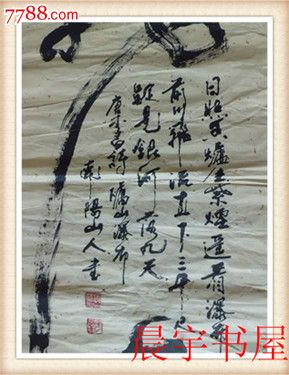 7788.com
日照香爐生紫煙遥看瀑布
前川飛流直下三千尺
疑是銀河落九天
唐李白詩廬山瀑布
陽山人書
晨宇书屋